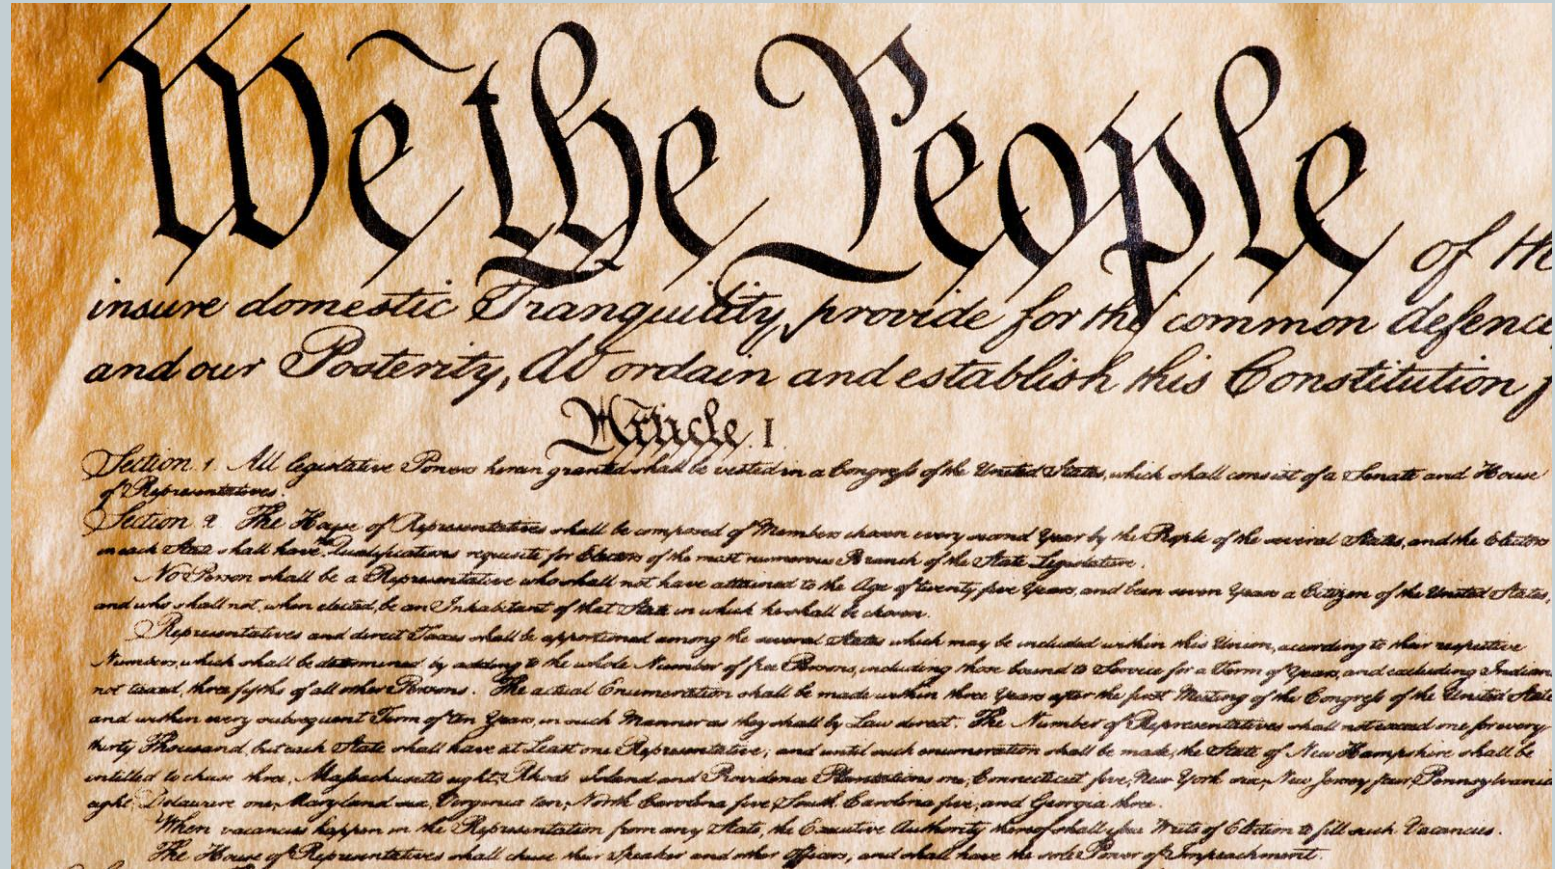 We the People of th
insure domestic Tranquility, provide for the common defence,
and our Posterity, do ordain and establish this Constitution f
Article. I.
Section. 1. All legislative Powers herein granted shall be vested in a Congress of the United States, which shall consist of a Senate and House
of Representatives.
Section. 2. The House of Representatives shall be composed of Members chosen every second Year by the People of the several States, and the Electors
in each State shall have the Qualifications requisite for Electors of the most numerous Branch of the State Legislature.
No Person shall be a Representative who shall not have attained to the Age of twenty five Years, and been seven Years a Citizen of the United States,
and who shall not, when elected, be an Inhabitant of that State in which he shall be chosen.
Representatives and direct Taxes shall be apportioned among the several States which may be included within this Union, according to their respective
Numbers, which shall be determined by adding to the whole Number of free Persons, including those bound to Service for a Term of Years, and excluding Indians
not taxed, three fifths of all other Persons. The actual Enumeration shall be made within three Years after the first Meeting of the Congress of the United State
and within every subsequent Term of ten Years, in such Manner as they shall by Law direct. The Number of Representatives shall not exceed one for every
thirty Thousand, but each State shall have at Least one Representative; and until such enumeration shall be made, the State of New Hampshire shall be
entitled to chuse three, Massachusetts eight, Rhode Island and Providence Plantations one, Connecticut five, New York six, New Jersey four, Pennsylvania
eight, Delaware one, Maryland six, Virginia ten, North Carolina five, South Carolina five, and Georgia three.
When vacancies happen in the Representation from any State, the Executive Authority thereof shall issue Writs of Election to fill such Vacancies.
The House of Representatives shall chuse their Speaker and other Officers; and shall have the sole Power of Impeachment.